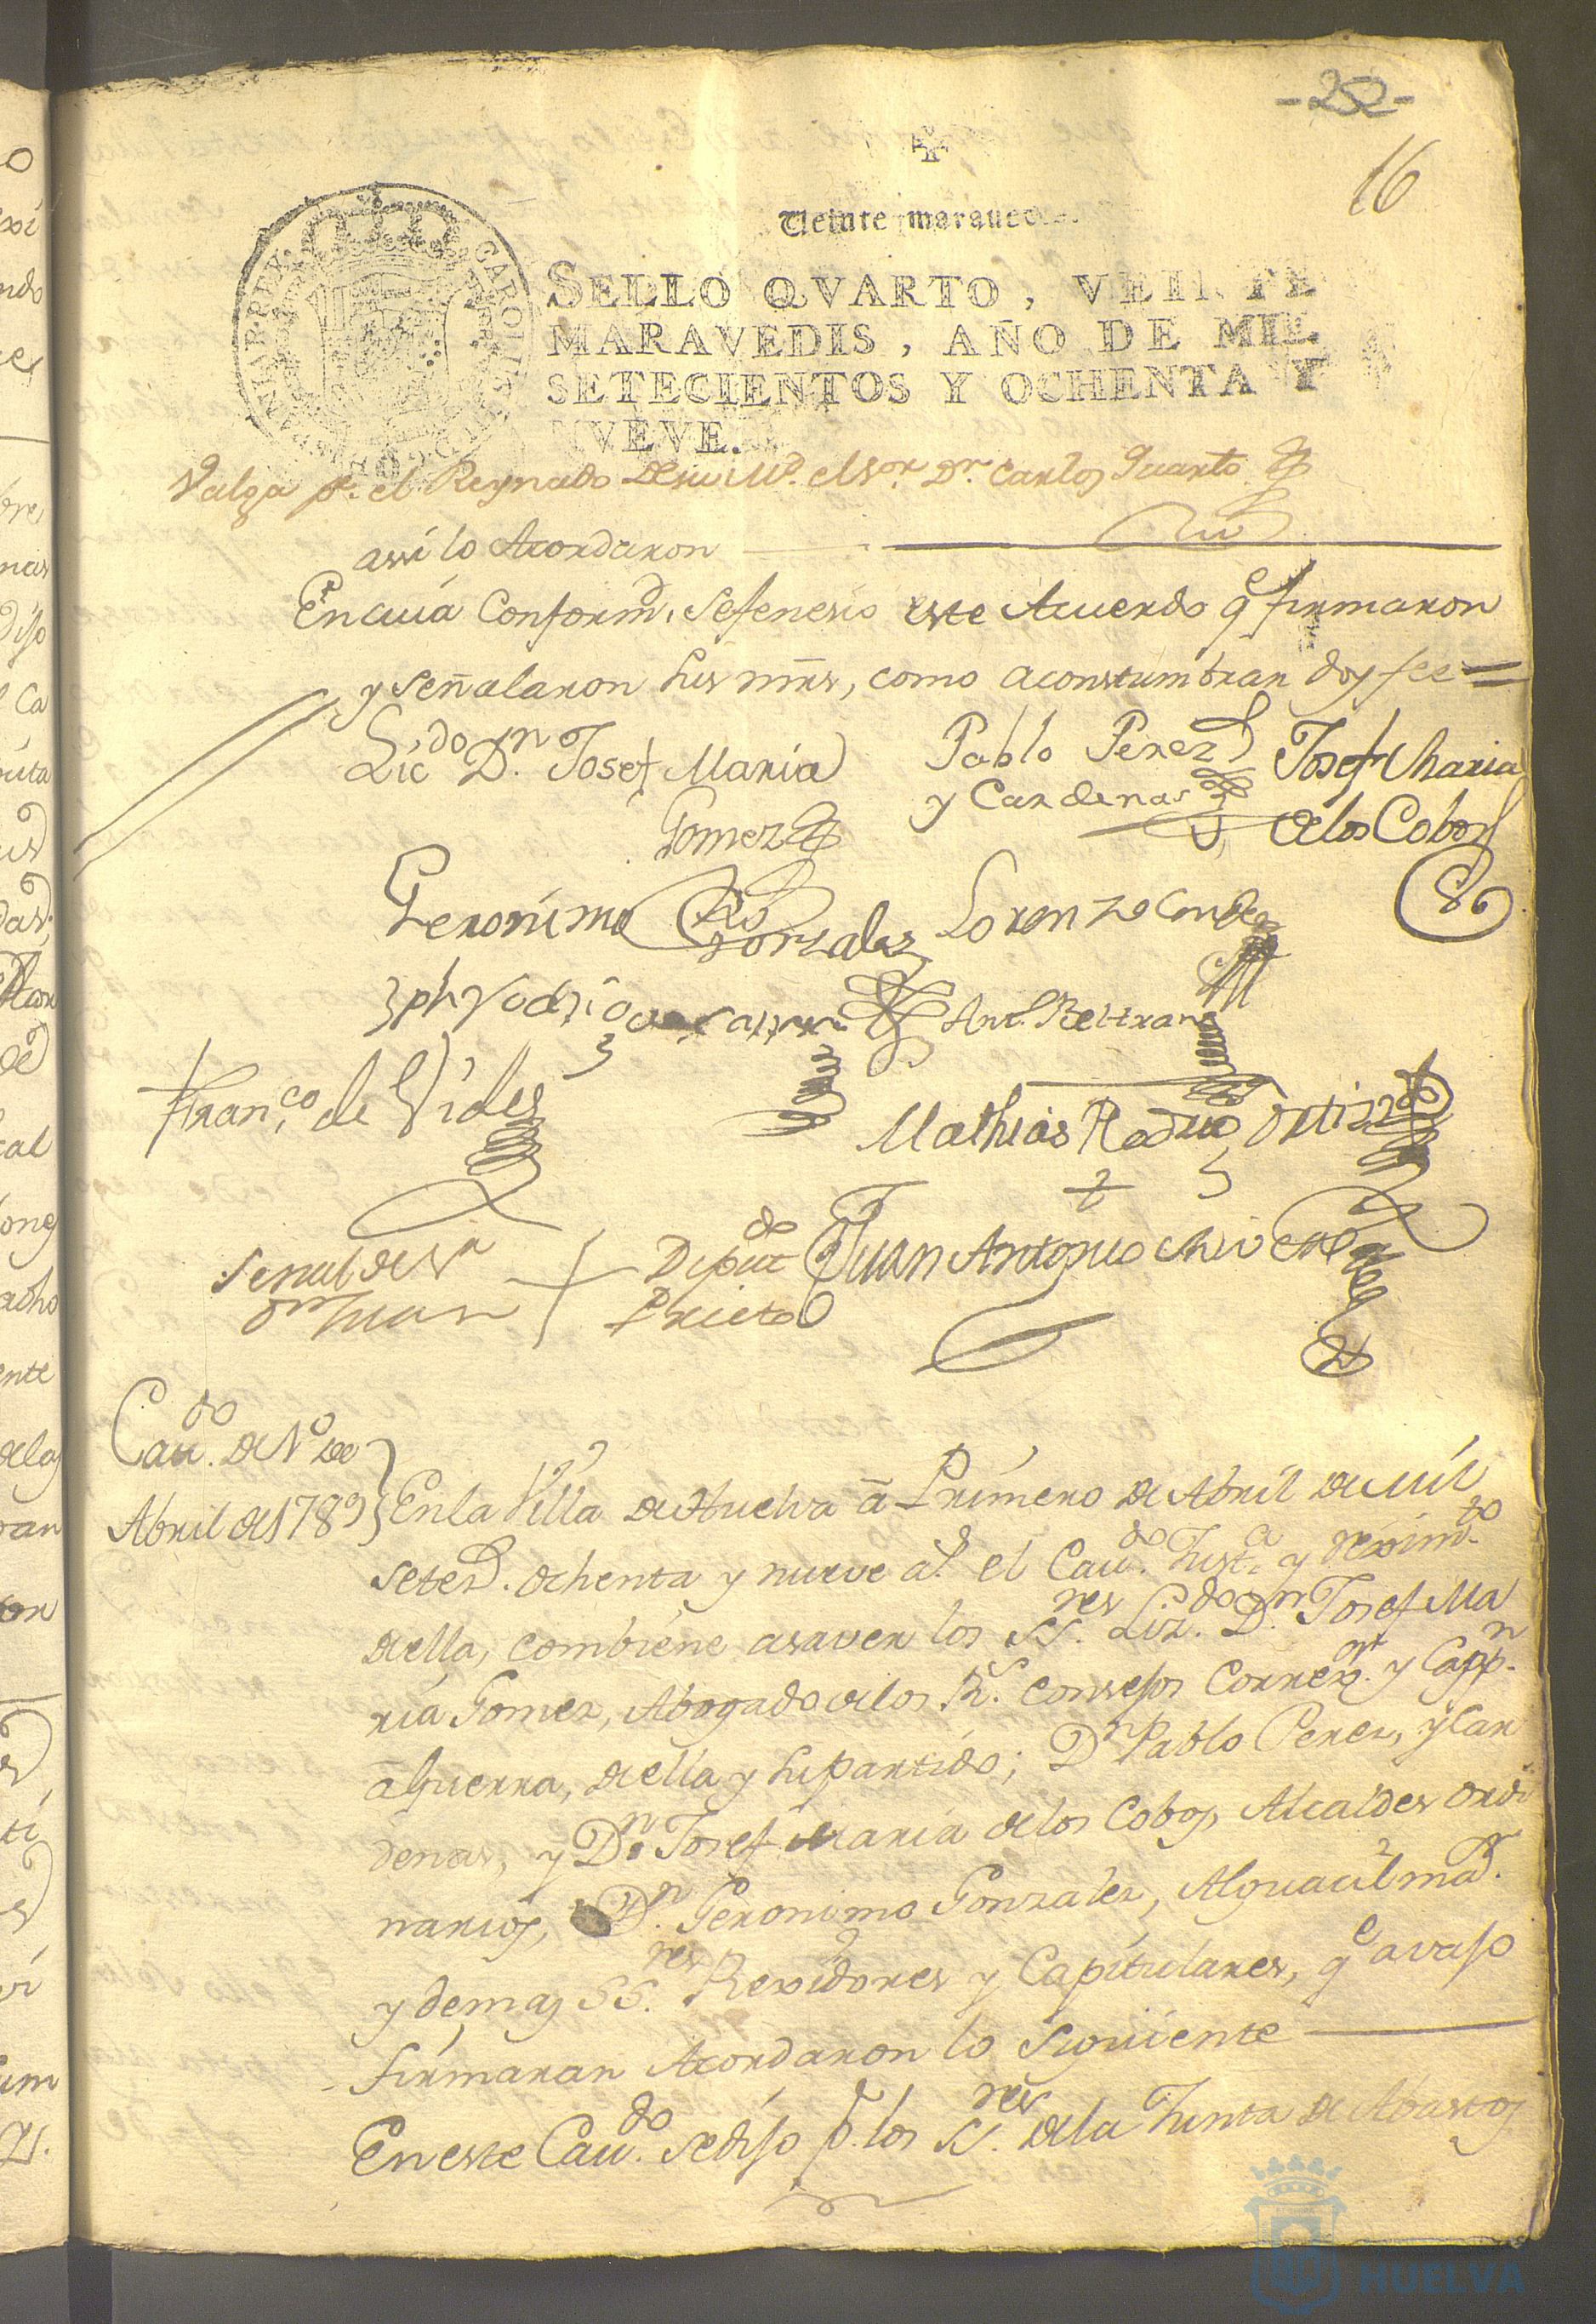 -252-
16
Veinte maraved
SELLO QVARTO, VEINTE
MARAVEDIS, AÑO DE MIL
SETECIENTOS Y OCHENTA Y
NVEVE.
CAROLUS
Valga pr. el Reynado de su Md. el Sor. Dn. Carlos Quarto
assi lo Acordaron
En cuia Conformd. se fenesio este Acuerdo qe firmaron
y señalaron sus mrds, como acostumbran doy fee=
Licdo Dn. Josef Maria Pablo Perez Josef Maria
Gomez y Cardenas de los Cobos
Geronimo Gonzales Lorenzo Conde
Jph Rodrig Ant. Beltran
Franco de Vides
Mathias Rodrig Ortiz
Señal de Dn Juan + Diputdo Prieto Juan Antonio
Cavdo. de 1o de
Abril de 1789 } En la Villa de Huelva a Primero de Abril de mil
setes. ochenta y nueve as. el Cavdo. Justa. y Reximto.
de ella, combiene asaver los SSres. Lizdo. Dn. Josef Ma
ria Gomez, Abogado de los Rs. Consejos Corregr. y Cappn.
a Guerra, de ella y su partido; Dn Pablo Perez, y Car
denas, y Dn. Josef Maria de los Cobos, Alcaldes Ordi
narios, Dn. Geronimo Gonzalez, Alguacil mar.
y demas SSres. Rexidores y Capitulares, qe avajo
firmaran Acordaron lo siguiente
En este Cavdo. se dijo pr. los SSres. de la Junta de Abastos
HUELVA